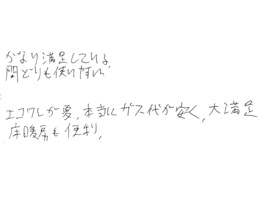 かなり満足している。
間どりも使いやすい
エコワレが要、本当にガス代が安く、大満足
床暖房も便利。